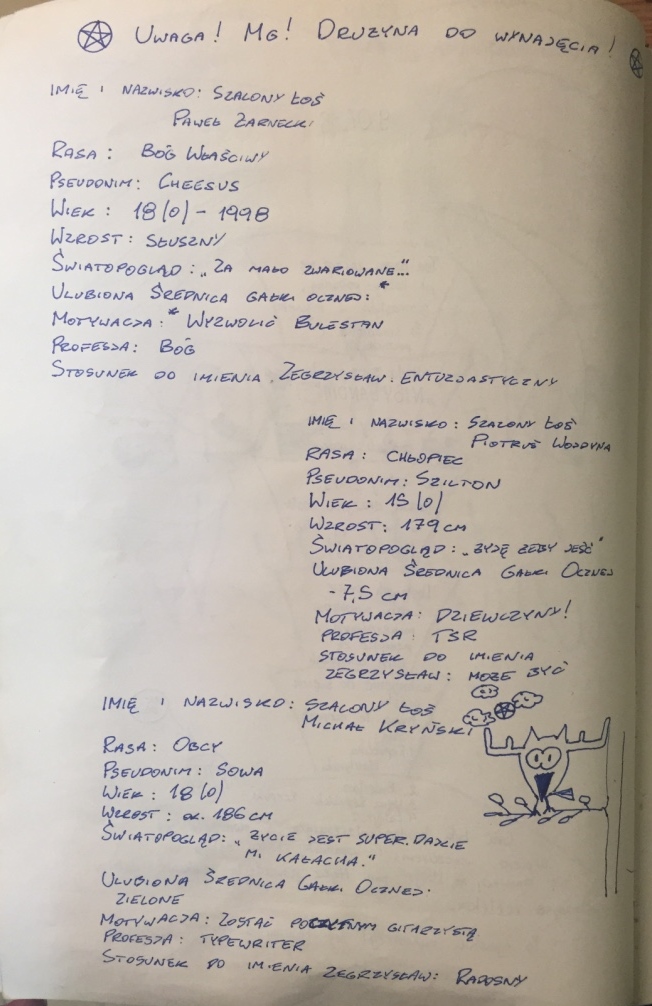 Uwaga! MG! Drużyna do wynajęcia!
Imię i nazwisko: Szalony Łoś
Paweł Żarnecki
Rasa: Bóg Właściwy
Pseudonim: Cheesus
Wiek: 18 (0) - 1998
Wzrost: Słuszny
Światopogląd: „Za mało zwariowane..."
Ulubiona Średnica gałki ocznej: *
Motywacja: * Wyzwolić Bulestan
Profesja: Bóg
Stosunek do imienia Zegrzysław: Entuzjastyczny
Imię i nazwisko: Szalony Łoś
Piotruś Wojdyna
Rasa: Chłopiec
Pseudonim: Szilton
Wiek: 15 (0)
Wzrost: 179 cm
Światopogląd: „Żyję żeby jeść"
Ulubiona Średnica Gałki Ocznej
- 7,5 cm
Motywacja: Dziewczyny!
Profesja: TSR
Stosunek do imienia
Zegrzysław: Może być
Imię i nazwisko: Szalony Łoś
Michał Kryński
Rasa: Obcy
Pseudonim: Sowa
Wiek: 18 (0)
Wzrost: ok. 186 cm
Światopogląd: „Życie jest super. Dajcie
mi kałacha."
Ulubiona Średnica Gałki Ocznej:
Zielone
Motywacja: Zostać gitarzystą
Profesja: Typewriter
Stosunek do imienia Zegrzysław: Radosny